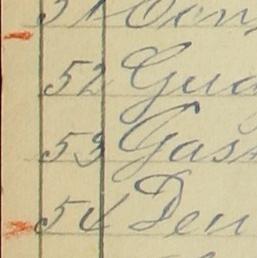 51 Con
52 Gud
53 Gas
54 Den